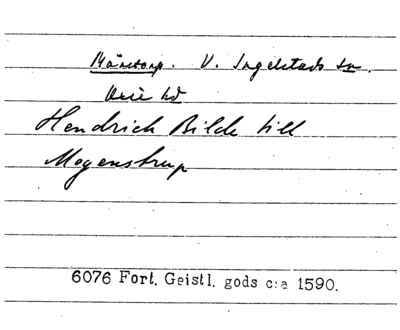 Månstorp. V. Ingelstads sn.
Oxie hd
Hendrich Bilde till
Mogenstrup
6076 Fort. Geistl. gods c:a 1590.